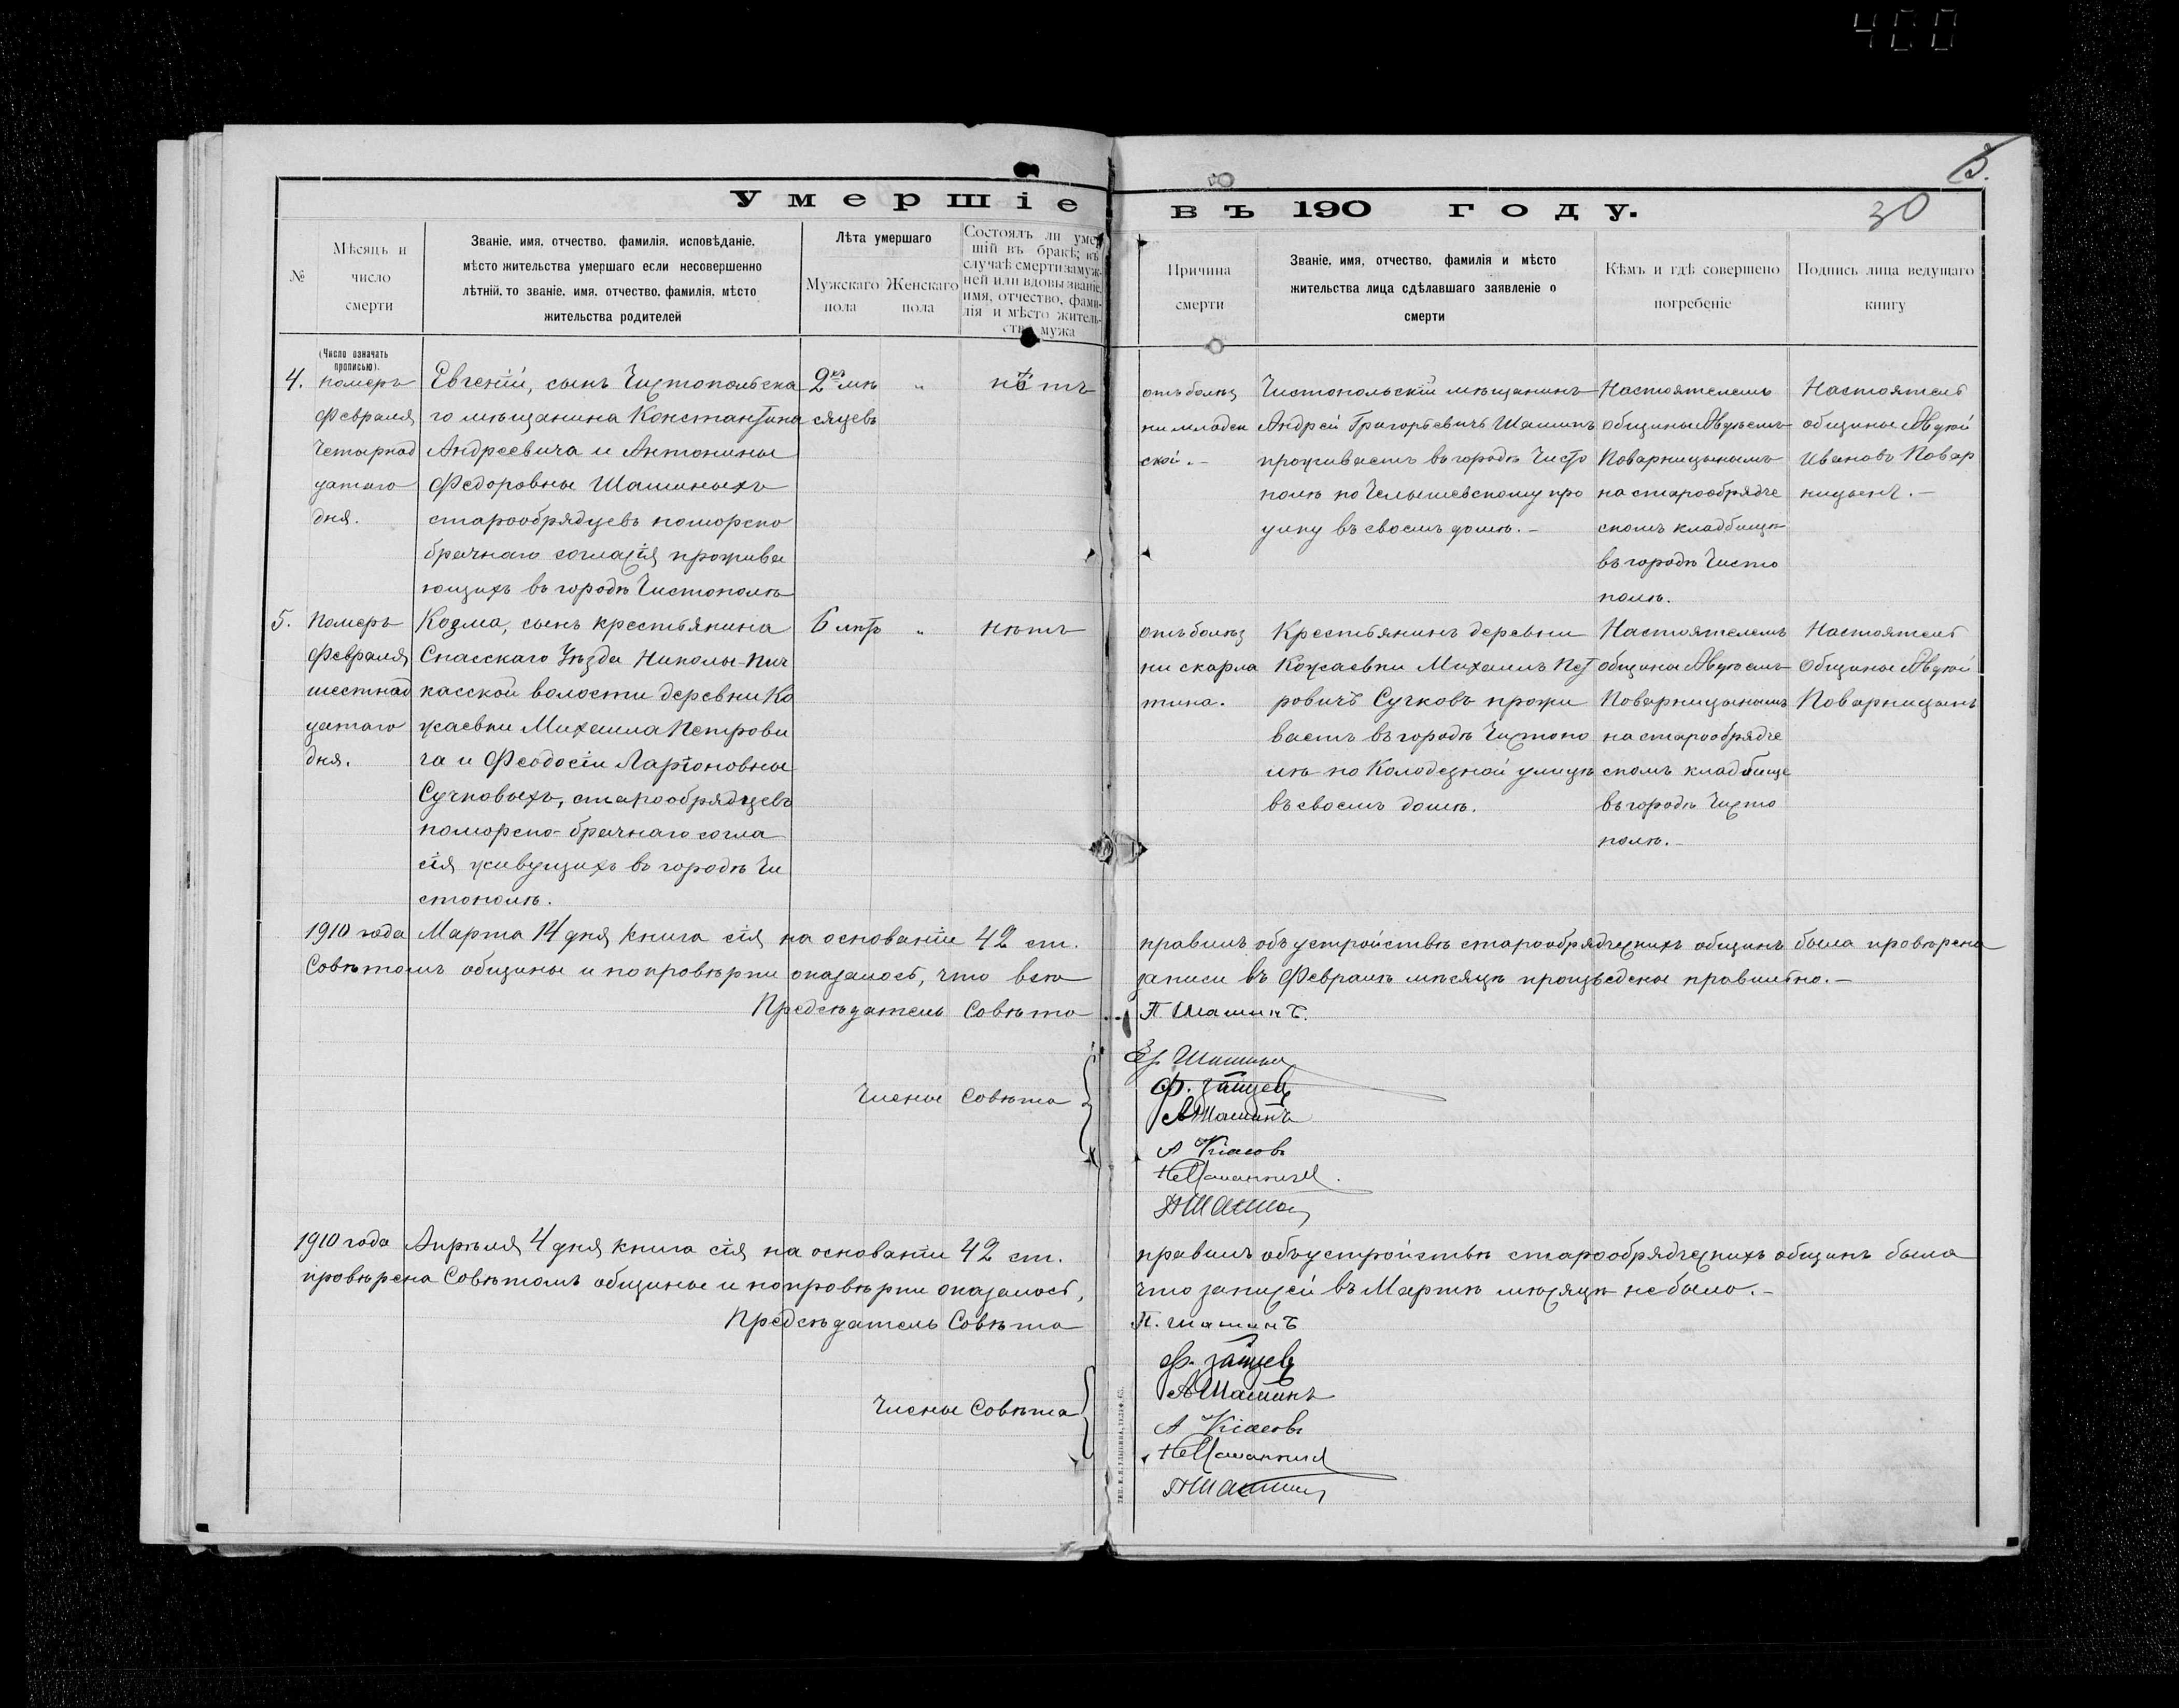 400
3.
30
Умершіе
въ 190 году.
№
Мѣсяцъ и
число
смерти
Званіе, имя, отчество, фамилія, исповѣданіе,
мѣсто жительства умершаго если несовершенно
лѣтній, то званіе, имя, отчество, фамилія, мѣсто
жительства родителей
Лѣта умершаго
Мужскаго пола
Женскаго пола
Состоялъ ли умер
шій въ бракѣ; въ
случаѣ смерти замуж-
ней или вдовы званіе,
имя, отчество, фами-
лія и мѣсто житель-
ства мужа
Причина
смерти
Званіе, имя, отчество, фамилія и мѣсто
жительства лица сдѣлавшаго заявленіе о
смерти
Кѣмъ и гдѣ совершено
погребеніе
Подпись лица ведущаго
книгу
(Число означать
прописью).
4.
померъ
Февраля
Четырнад
цатаго
дня.
Евгеній, сынъ Чистопольска
го мѣщанина Константина
Андреевича и Антонины
Федоровны Шашиныхъ
старообрядцевъ поморско
брачнаго согласія прожива
ющихъ въ городѣ Чистополѣ
2хъ мѣ
сяцевъ
„
нѣтъ
отъ болѣз
ни младен
ской. –
Чистопольскій мѣщанинъ
Андрей Григорьевичъ Шашинъ
проживаетъ въ городѣ Чисто
полѣ по Челышевскому про
улку въ своемъ домѣ. –
Настоятелемъ
общины Авдѣемъ
Поварницынымъ
на старообрядче
скомъ кладбищѣ
въ городѣ Чисто
полѣ.
Настоятель
общины Авдѣй
Ивановъ Повар
ницынъ. –
5.
Померъ
Февраля
шестнад
цатаго
дня.
Козма, сынъ крестьянина
Спасскаго Уѣзда Николы-Пич
касской волости деревни Ко
жаевки Михаила Петрови
ча и Феодосіи Ларіоновны
Сучковыхъ, старообрядцевъ
поморско-брачнаго согла
сія живущихъ въ городѣ Чи
стополѣ.
6 лѣтъ
„
нѣтъ
отъ болѣз
ни скарла
тина.
Крестьянинъ деревни
Кожаевки Михаилъ Пет
ровичъ Сучковъ прожи
ваетъ въ городѣ Чистопо
лѣ по Колодезной улицѣ
въ своемъ домѣ.
Настоятелемъ
общины Авдѣемъ
Поварницынымъ
на старообрядче
скомъ кладбище
въ городѣ Чисто
полѣ. –
Настоятель
Общины Авдѣй
Поварницынъ
1910 года Марта 14 дня книга сія на основаніи 42 ст. правилъ объ устройствѣ старообрядческихъ общинъ была провѣрена
Совѣтомъ общины и по провѣрки оказалось, что всѣ записи въ Февралѣ мѣсяцѣ произведены правильно. –
Предсѣдатель Совѣта П. Шашинъ.
Члены Совѣта
Ф. Зайцевъ
А Шашинъ
А Власовъ
А Шашин
1910 года Апрѣля 4 дня книга сія на основаніи 42 ст. правилъ объ устройствѣ старообрядческихъ общинъ была
провѣрена Совѣтомъ общины и по провѣрки оказалось, что записей въ Мартѣ мѣсяцѣ не было. –
Предсѣдатель Совѣта П. Шашинъ
Члены Совѣта
Ф. Зайцевъ
А Шашинъ
А Власовъ
А Шашин